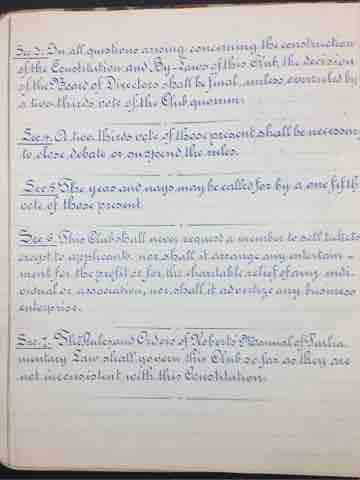 Sec 3. In all questions arising concerning the construction
of the Constitution and By-Laws of this Club, the decision
of the Board of Directors shall be final, unless overruled by
a two-thirds vote of the Club quorum.
Sec 4. A two thirds vote of those present shall be necessary
to close debate or suspend the rules.
Sec 5 The yeas and nays may be called for by a one fifth
vote of those present.
Sec 6. This Club shall never request a member to sell tickets
except to applicants, nor shall it arrange any entertain-
ment for the profit or for the charitable relief of any indi-
vidual or association, nor shall it advertize any business
enterprise.
Sec. 7. The Rules and Orders of Roberts Manual of Parlia
mentary Law shall govern this Club so far as they are
not inconsistent with this Constitution.